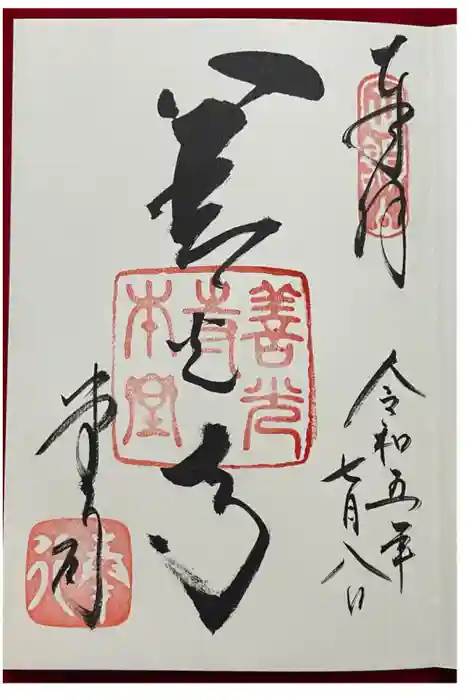 奉拝
令和五年
七月八日
善光寺
善光
寺
本堂
堂司